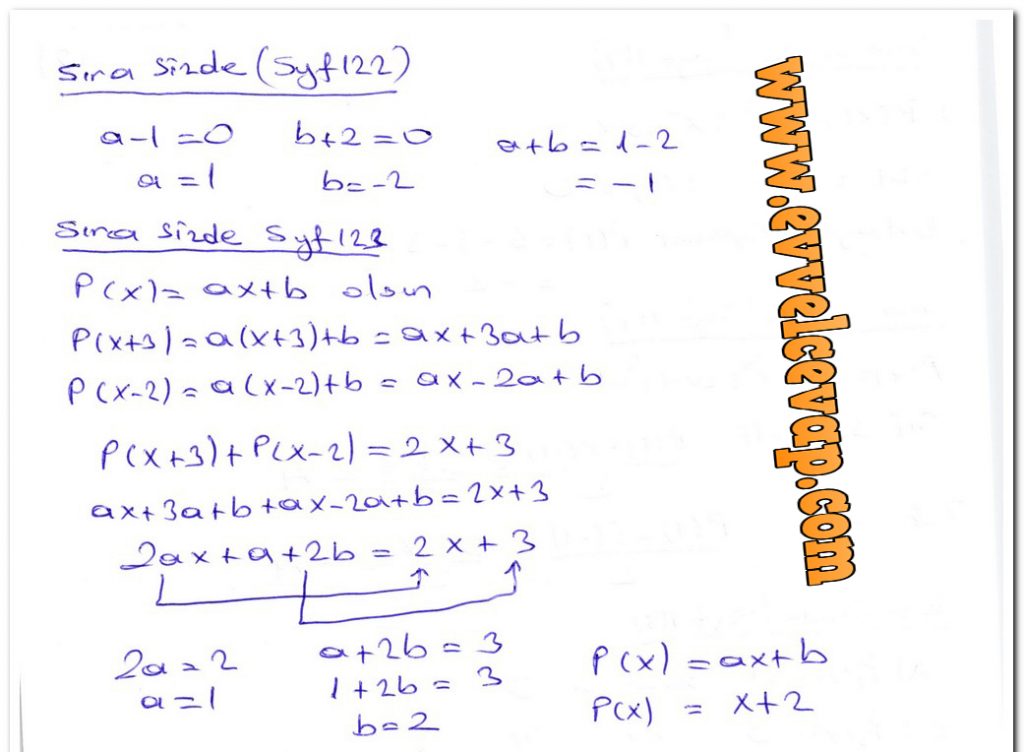 Sıra Sizde (Syf122)
a-1=0 b+2=0 a+b=1-2
a=1 b=-2 =-1
Sıra Sizde Syf123
P(x)=ax+b olsun
P(x+3)=a(x+3)+b=ax+3a+b
P(x-2)=a(x-2)+b=ax-2a+b
P(x+3)+P(x-2)=2x+3
ax+3a+b+ax-2a+b=2x+3
2ax+a+2b=2x+3
2a=2 a+2b=3 P(x)=ax+b
a=1 1+2b=3 P(x)=x+2
b=2
www.evvelcevap.com